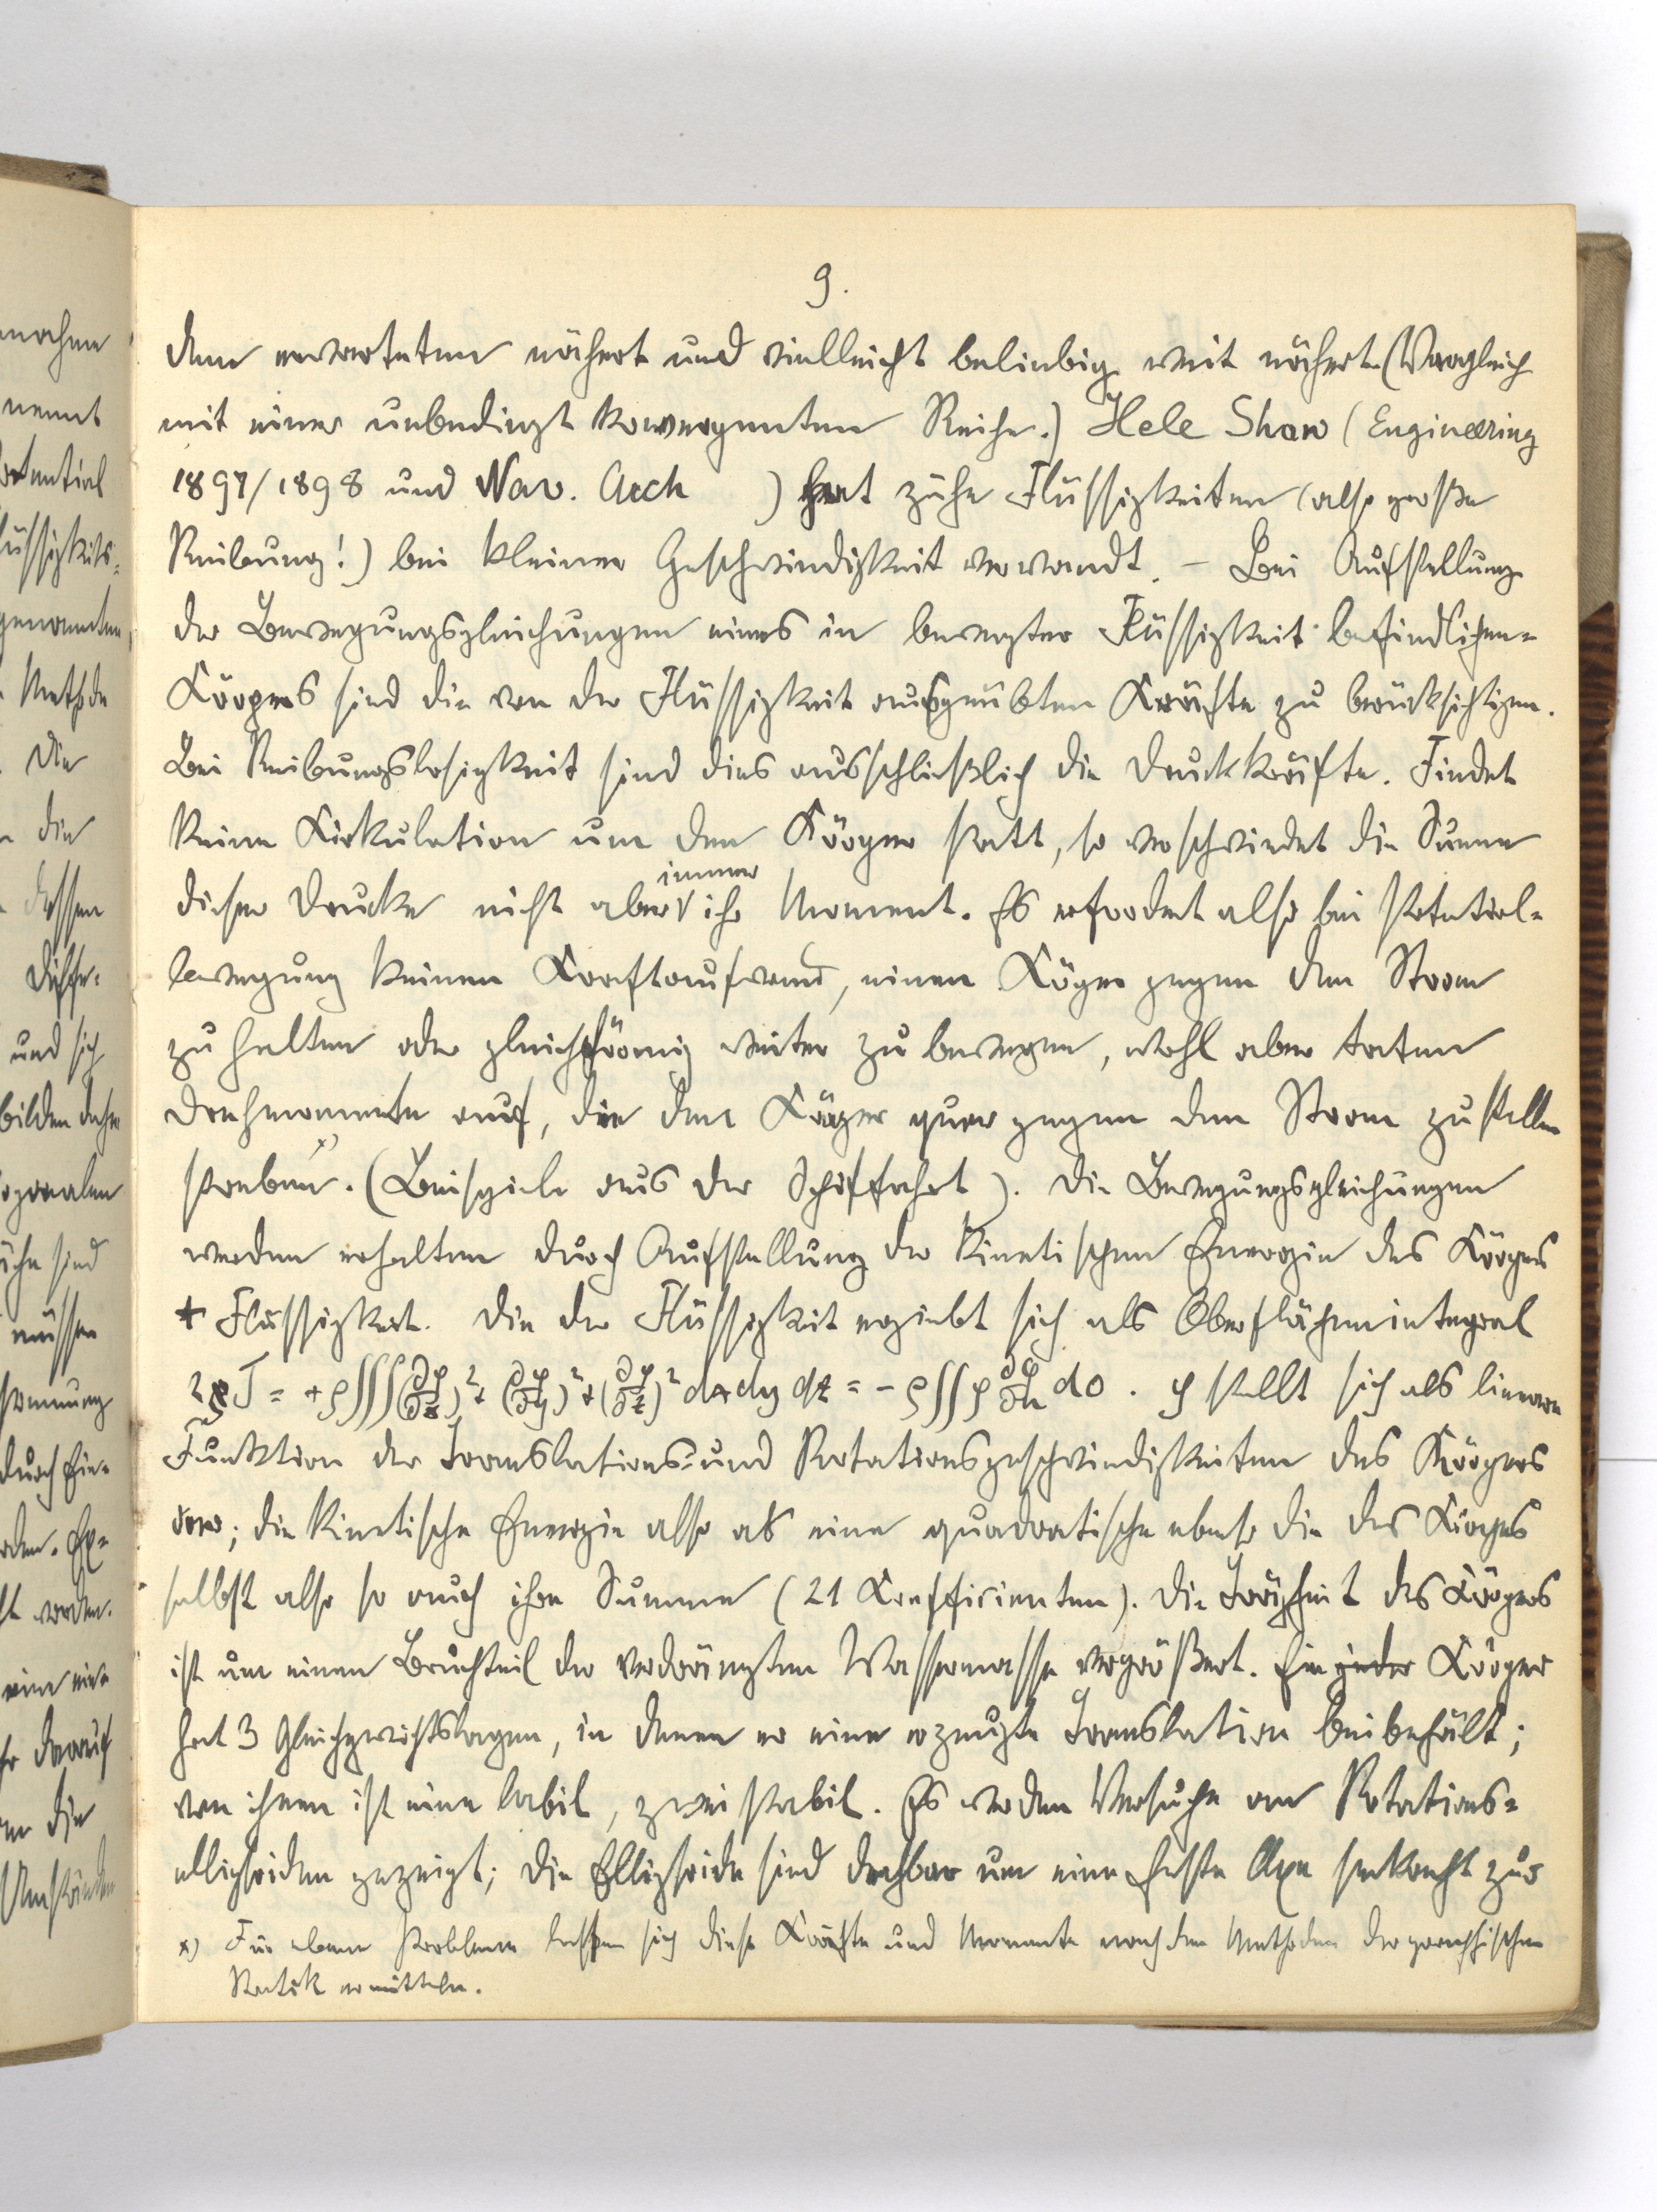 9.
dem erwarteten nähert und vielleicht beliebig weit nähert (Vergleich
mit einer unbedingt konvergenten Reihe.) Hele Shaw (Engineering
1897/1898 und Nav. Arch ) hat zähe Flüssigkeiten (also große
Reibung!) bei kleiner Geschwindigkeit verwandt. – Bei Aufstellung
der Bewegungsgleichungen eines in bewegter Flüssigkeit befindlichen-
Körpers sind die von der Flüssigkeit ausgeübten Kräfte zu berücksichtigen.
Bei Reibungslosigkeit sind dies ausschließlich die Druckkräfte. Findet
keine Zirkulation um den Körper statt, so verschwindet die Summe
dieser Drucke nicht aber immer ihr Moment. Es erfordert also bei Potential-
bewegung keinen Kraftaufwand, einen Köper gegen den Strom
zu halten oder gleichförmig weiter zu bewegen, wohl aber treten
Drehmomente auf, die den Körper quer gegen den Strom zu stellen
streben x). (Beispiele aus der Schiffahrt). Die Bewegungsgleichungen
werden erhalten durch Aufstellung der kinetischen Energie des Körpers
+ Flüssigkeit. Die der Flüssigkeit ergiebt sich als Oberflächenintegral
2 T = + ρ∭(∂φ/∂x)² + (∂φ/∂y)² + (∂φ/∂z)² dx dy dz = - ρ∬ φ ∂φ/∂n do. φ stellt sich als lineare
Funktion der Translations- und Rotationsgeschwindigkeiten des Körpers
dar; die kinetische Energie also als eine quadratische ebenso die des Körpers
selbst also so auch ihre Summe (21 Koeffizienten). Die Trägheit des Körpers
ist um einen Bruchteil der verdrängten Wassermasse vergrößert. Ein jeder Körper
hat 3 Gleichgewichtslagen, in denen er eine erzeugte Translation beibehält;
von ihnen ist eine labil, zwei stabil. Es werden Versuche an Rotations-
ellipsoiden gezeigt; die Ellipsoide sind drehbar um eine feste Axe senkrecht zur
x) Für ebene Probleme lassen sich diese Kräfte und Momente nach den Methoden der graphischen
Statik ermitteln.